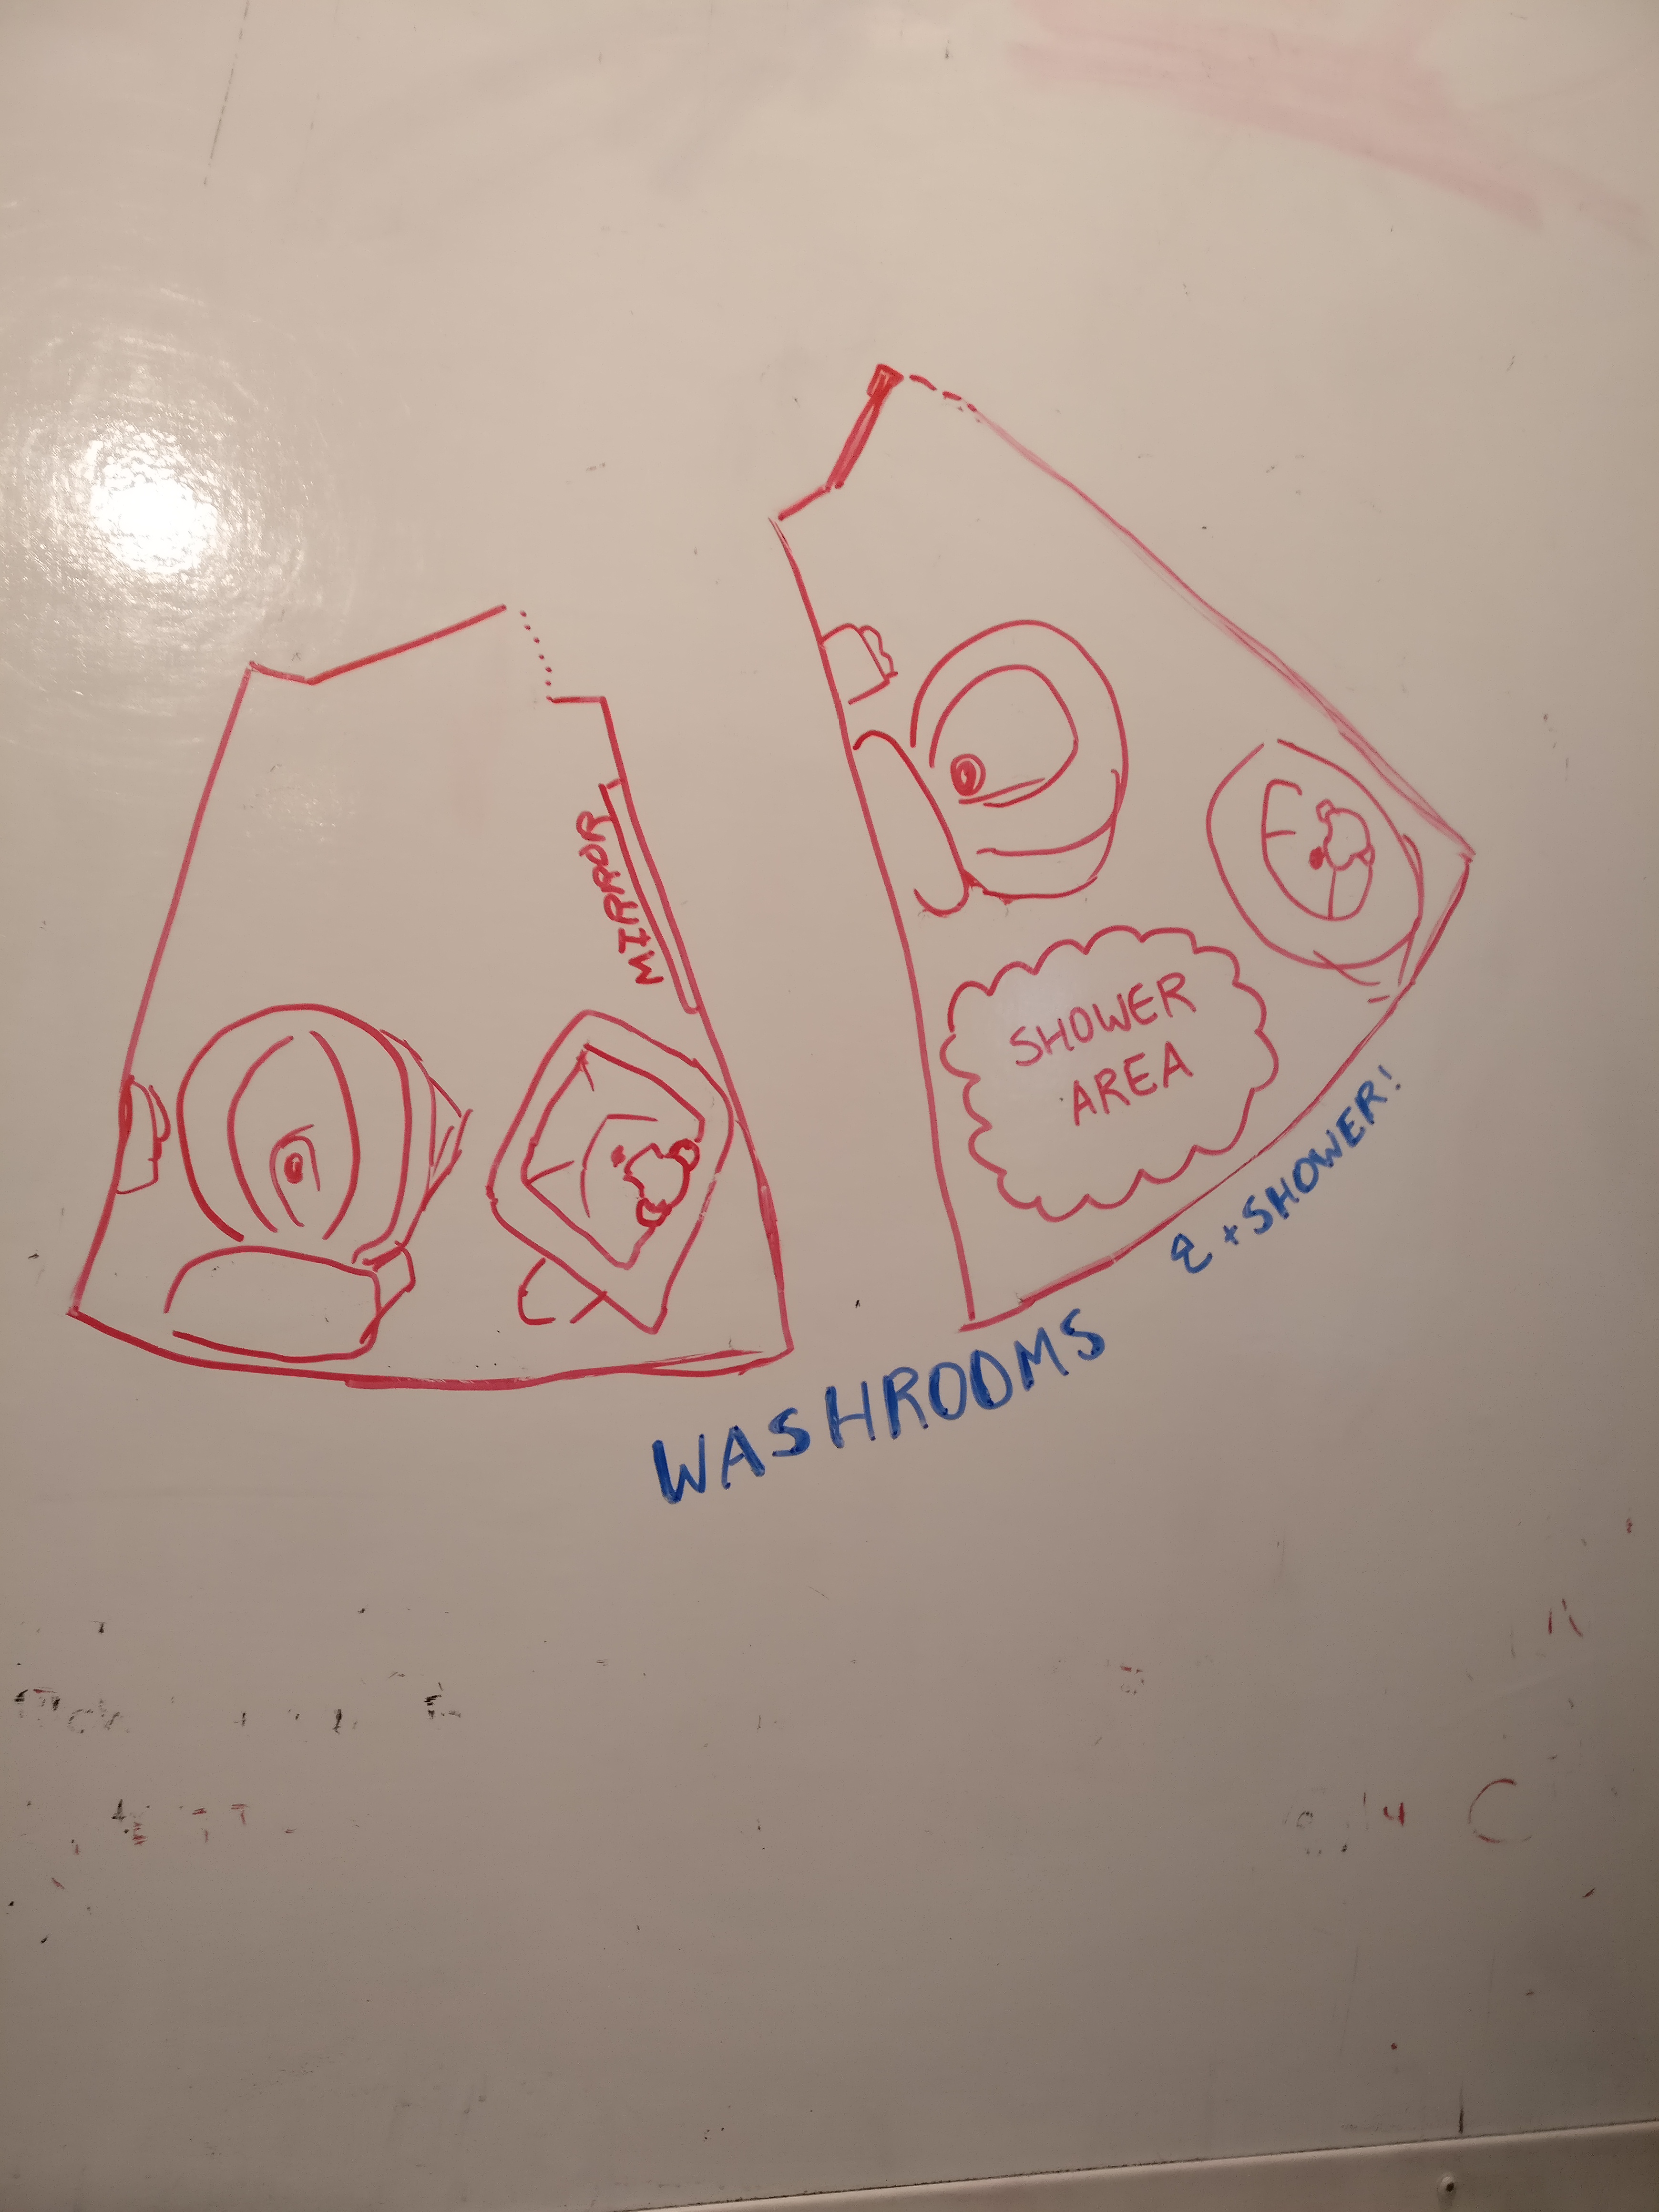 MIRROR
SHOWER
AREA
WASHROOMS
& + SHOWER!